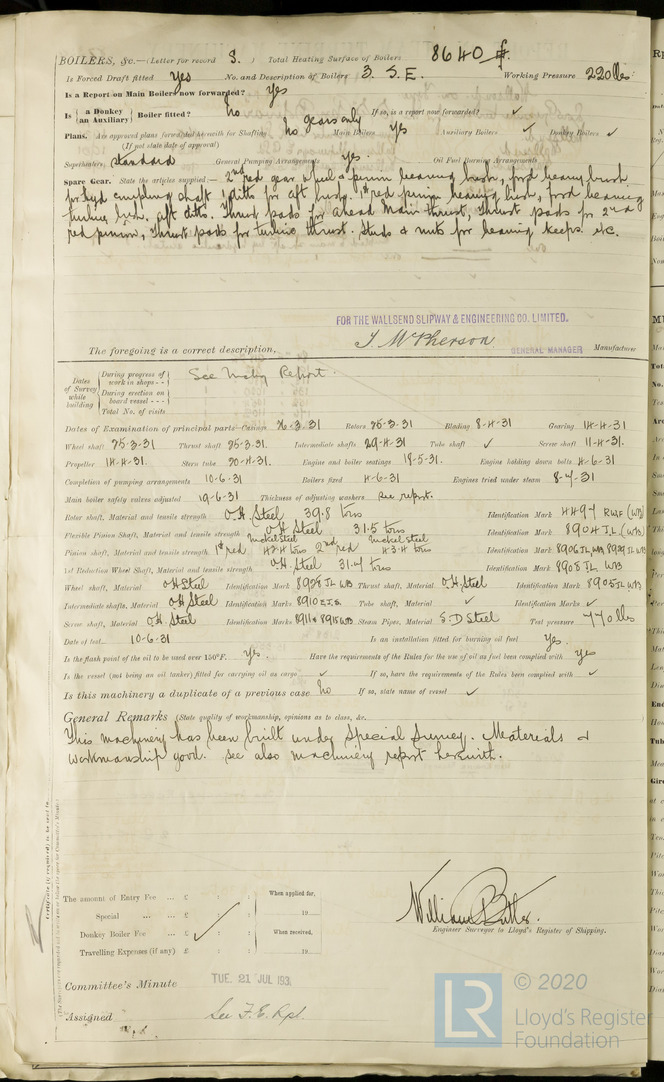 BOILERS, &c.—(Letter for record S. ) Total Heating Surface of Boilers 8640 ft
Is Forced Draft fitted Yes No. and Description of Boilers 3. S.E. Working Pressure 220 lbs
Is a Report on Main Boilers now forwarded? Yes
Is { a Donkey an Auxiliary } Boiler fitted? No If so, is a report now forwarded? ✓
Plans. Are approved plans forwarded herewith for Shafting No gears only Main Boilers yes Auxiliary Boilers ✓ Donkey Boilers ✓
(If not state date of approval)
Superheaters Standard General Pumping Arrangements yes. Oil Fuel Burning Arrangements
Spare Gear. State the articles supplied:— 2nd red gear wheel & pinion bearing bush, ford bearing bush
for hyd coupling shaft 1 ditto for aft bush. 1st red pinion bearing bush, ford bearing
turbine bush. aft ditto. Thrust pads for ahead Main thrust, Thrust pads for 2nd
red pinion, Thrust pads for turbine thrust. Studs & nuts for bearing keeps. etc.
FOR THE WALLSEND SLIPWAY & ENGINEERING CO. LIMITED.
The foregoing is a correct description, J. McPherson GENERAL MANAGER Manufacturer
Dates of Survey while building
During progress of work in shops - - See Machy Report.
During erection on board vessel - - -
Total No. of visits
Dates of Examination of principal parts—Casings 26-3-31 Rotors 25-3-31 Blading 8-4-31 Gearing 14-4-31
Wheel shaft 25-3-31 Thrust shaft 25-3-31. Intermediate shafts 29-4-31 Tube shaft ✓ Screw shaft 11-4-31.
Propeller 14-4-31. Stern tube 20-4-31. Engine and boiler seatings 18-5-31. Engine holding down bolts 4-6-31
Completion of pumping arrangements 10-6-31 Boilers fixed 4-6-31 Engines tried under steam
Main boiler safety valves adjusted 19-6-31 Thickness of adjusting washers See report.
Rotor shaft, Material and tensile strength O.H. Steel 39.8 tons Identification Mark 4494 RWF (WB)
Flexible Pinion Shaft, Material and tensile strength O.H Steel 31.5 tons Identification Mark 8904 J.L. (WB)
Pinion shaft, Material and tensile strength 1st red Nickel Steel 43.4 tons 2nd red Nickel Steel 43.4 tons Identification Mark 8906 JL WB 8929 JL WB
1st Reduction Wheel Shaft, Material and tensile strength O.H. Steel 31.4 tons Identification Mark 8908 JL WB
Wheel shaft, Material O.H Steel Identification Mark 8928 JL WB Thrust shaft, Material O.H Steel Identification Mark 8905 JL WB
Intermediate shafts, Material O.H Steel Identification Marks Tube shaft, Material ✓ Identification Marks ✓
Screw shaft, Material O.H. Steel Identification Marks Steam Pipes, Material S.D Steel Test pressure 770 lbs
Date of test 10-6-31 Is an installation fitted for burning oil fuel Yes.
Is the flash point of the oil to be used over 150°F. Yes. Have the requirements of the Rules for the use of oil as fuel been complied with yes
Is the vessel (not being an oil tanker) fitted for carrying oil as cargo ✓ If so, have the requirements of the Rules been complied with ✓
Is this machinery a duplicate of a previous case No If so, state name of vessel ✓
General Remarks (State quality of workmanship, opinions as to class, &c.
This machinery has been built under Special Survey. Materials &
workmanship good. see also machinery report herewith.
Certificate (if required) to be sent to
The amount of Entry Fee ... £ : : When applied for,
Special ... ... £ : : 19
Donkey Boiler Fee ... £ : : When received,
Travelling Expenses (if any) £ : : 19
William Butler.
Engineer Surveyor to Lloyd's Register of Shipping.
Committee's Minute TUE. 21 JUL 1931
Assigned See F.E. Rpt.
LR © 2020
Lloyd's Register
Foundation